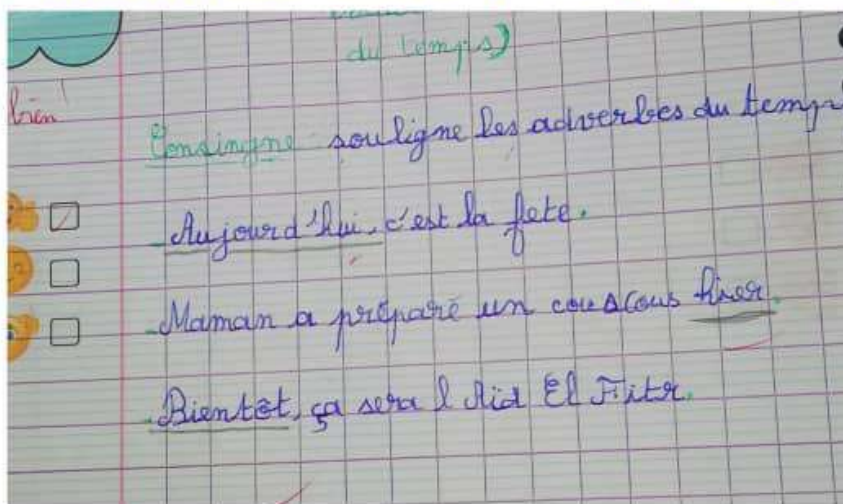 du temps)
bien
Consingne souligne les adverbes du temps
Aujourd'hui, c'est la fete.
Maman a préparé un couscous hier.
Bientôt, ça sera l Aid El Fitr.